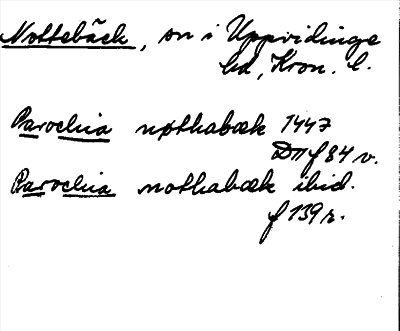 Nottebäck, sn i Uppvidinge
hd, Kron. l.
Parochia nøthabæk 1447
DII f 84 v.
Parochia nothabæk ibid.
f 139 r.